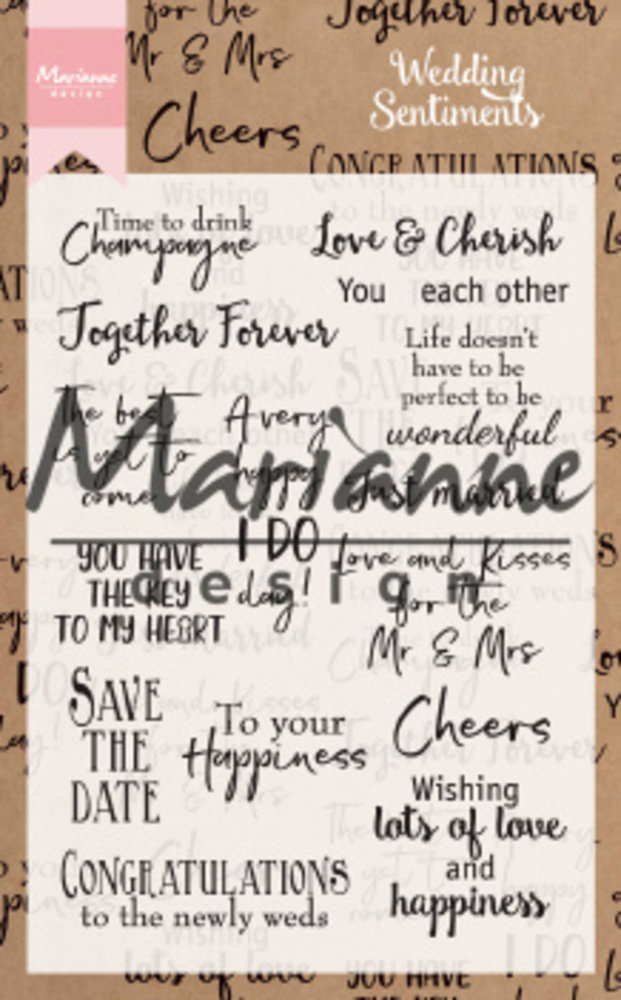 for the
Mr & Mrs
Together Forever
Marianne
design
Wedding
Sentiments
Cheers
CONGRATULATIONS
Time to drink
Champagne
Love & Cherish
You each other
Together Forever
Life doesn't
have to be
perfect to be
wonderful
The best
is yet to
come
A very
happy
I DO
day!
Just married
Marianne
design
YOU HAVE
THE KEY
TO MY HEART
Love and Kisses
for the
Mr & Mrs
SAVE
THE
DATE
To your
Happiness
Cheers
Wishing
lots of love
and
happiness
CONGRATULATIONS
to the newly weds
lots of love
YOU HAVE